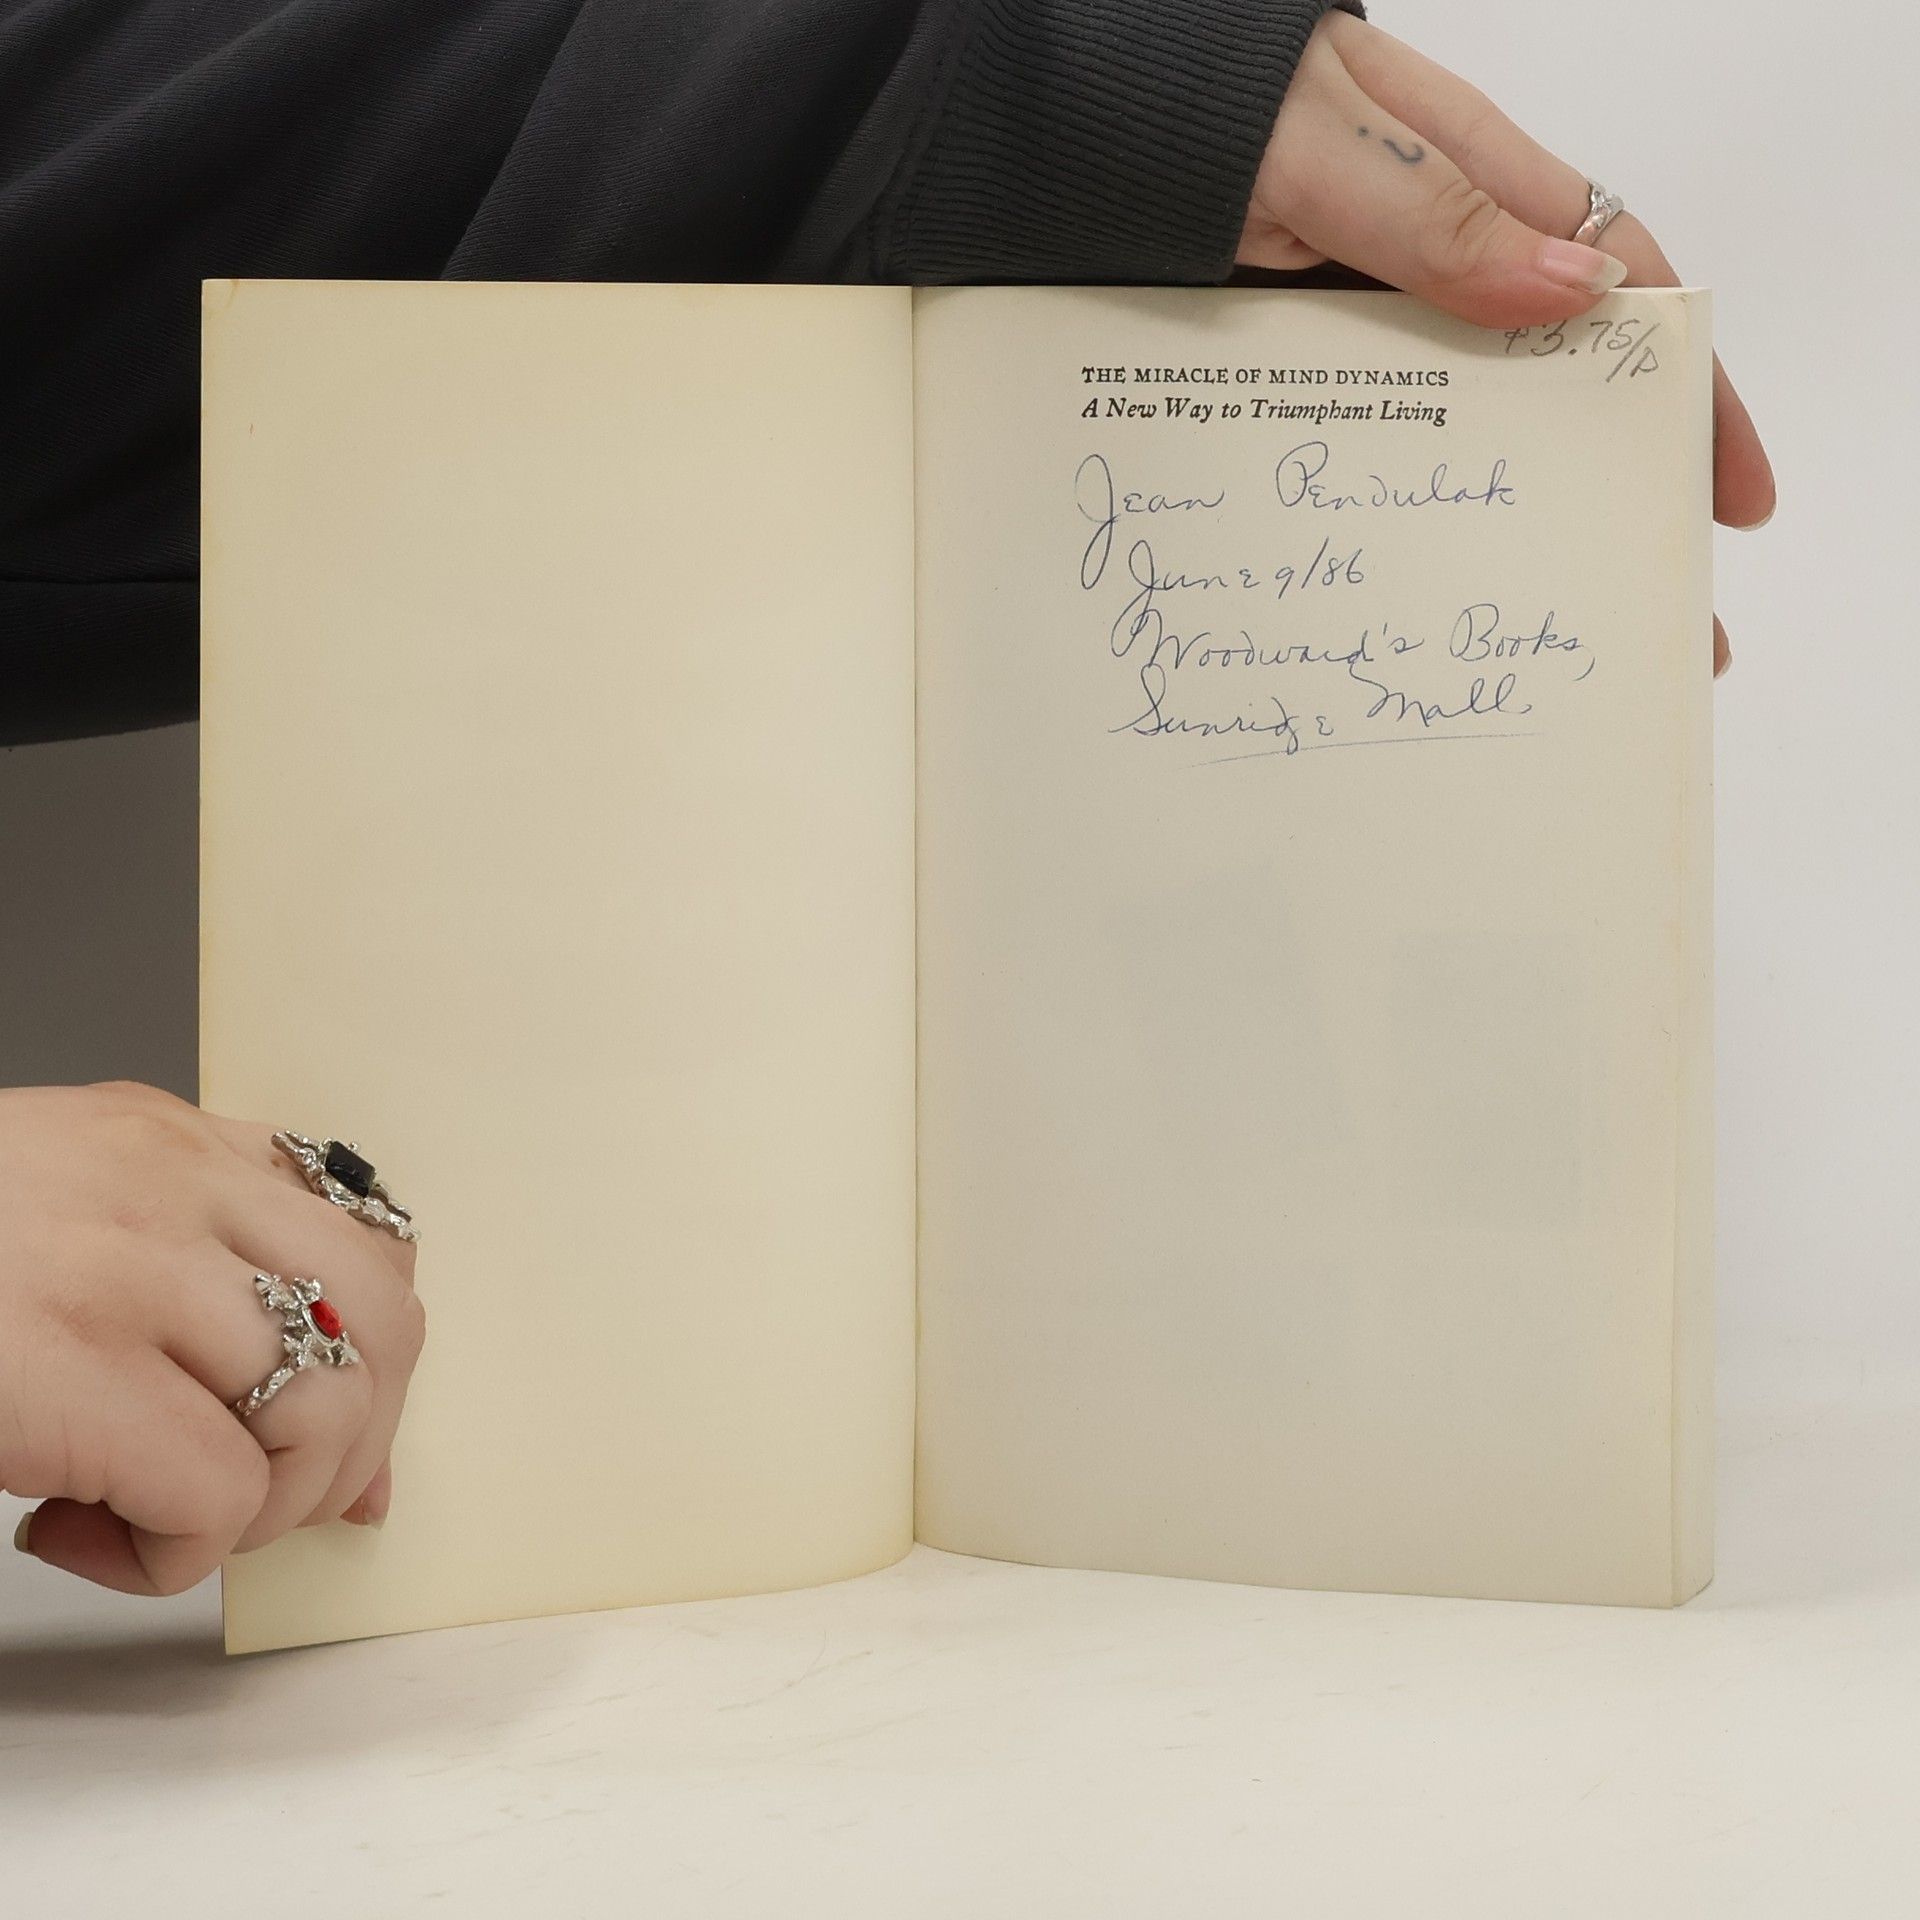 $3.75/D
THE MIRACLE OF MIND DYNAMICS
A New Way to Triumphant Living
Jean Pendulak
June 9/86
Woodward's Books,
Sunridge Mall